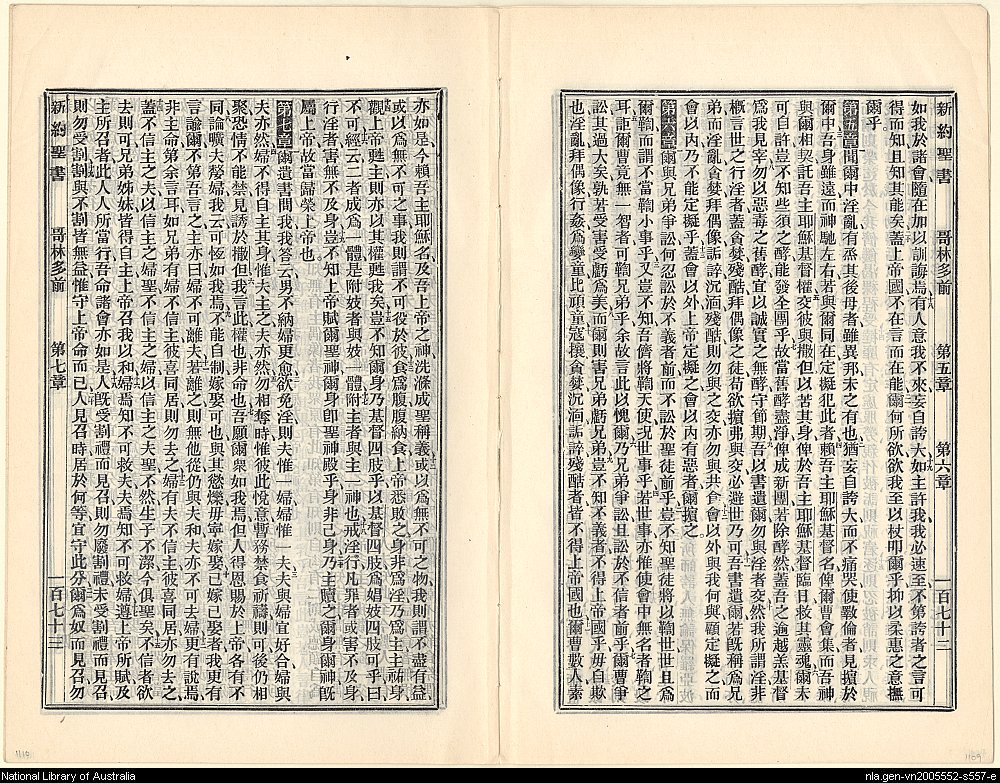 新約聖書 哥林多前 第五章 第六章 一百七十二
如我於諸會隨在加以訓誨焉有人意我不來妄自誇大如主許我我必速至不第誇者之言可
得而知且知其能矣蓋上帝國不在言而在能爾何所欲欲我至以杖叩爾乎抑以柔惠之意撫
爾乎
第五章聞爾中淫亂有烝其後母者雖異邦未之有也猶妄自誇大而不痛哭使斁倫者見擯於
爾中吾身雖遠而神馳左右若與爾同在定擬犯此者賴吾主耶穌基督名俾爾曹會集而吾神
與爾相契託吾主耶穌基督權交彼與撒但以苦其身俾於吾主耶穌基督臨日救其靈魂爾未
可自許豈不知些須之酵能發全團乎故當舊酵盡淨俾成新團若除酵然蓋吾之逾越羔基督
為我見宰勿以惡毒之舊酵宜以誠實之無酵守節期吾以書遺爾勿與淫者交然我所謂淫非
概言世之行淫者蓋貪婪殘酷拜偶像之徒苟欲擯弗與交必避世乃可吾書遺爾若旣稱為兄
弟而淫亂貪婪拜偶像詬誶沉湎殘酷則勿與之交亦勿與共食會以外與我何與顧定擬之而
會以內乃不能定擬乎蓋會以外上帝定擬之會以內有惡者爾擯之
第六章爾與兄弟爭訟何忍訟於不義者前而不訟於聖徒前乎豈不知聖徒將以鞫世世且為
爾鞫而謂不當鞫小事乎又豈不知吾儕將鞫天使况世事乎若世事亦惟使會中無名者鞫之
耳詎爾曹竟無一智者可鞫兄弟乎余故言此以愧爾乃兄弟爭訟且訟於不信者前乎爾曹爭
訟其過大矣孰若受害受虧為美而爾則害兄弟虧兄弟豈不知不義者不得上帝國乎毋自欺
也淫亂拜偶像行姦為孌童比頑童寇攘貪婪沉湎詬誶殘酷者皆不得上帝國也爾曹數人素
亦如是今賴吾主耶穌名及吾上帝之神洗滌成聖稱義或以為無不可之物我則謂不盡有益
或以為無不可之事我則謂不可役於彼食為腹腹納食上帝悉敗之身非為淫乃為主主祐身
觀上帝甦主則亦以其權甦我矣豈不知爾身乃基督四肢乎以基督四肢為娼妓四肢可乎曰
不可經云二者成為一體是附妓者與妓一體附主者與主一神也戒淫行凡罪者或害不及身
行淫者害無不及身豈不知上帝賦爾聖神爾身卽聖神殿乎身非己身乃主贖之爾身爾神旣
屬上帝故當歸榮上帝也
第七章爾遺書問我我答云男不納婦更愈欲免淫則夫惟一婦婦惟一夫夫與婦宜好合婦與
夫亦然婦不得自主其身惟夫主之夫亦然勿相奪時惟彼此悅意暫務禁食祈禱則可後仍相
聚恐情不能禁見誘於撒但我言此權也非命也吾願爾眾如我焉但人得恩賜於上帝各有不
同論曠夫嫠婦我云可恆如我焉不能自制嫁娶可也與其慾燬毋寧嫁娶已嫁已娶者我更有
言諭爾不第吾言之主亦曰婦不可離夫若離之則無他從仍與夫和夫亦不可去婦更有說焉
非主命第余言耳如兄弟有婦不信主彼喜同居則勿去之婦有夫不信主彼喜同居亦勿去之
蓋不信主之夫以信主之婦聖不信主之婦以信主之夫聖不然生子不潔今俱聖矣不信者欲
去則可兄弟姊妹皆得自主上帝召我以和婦焉知不可救夫夫焉知不可救婦遵上帝所賦及
主所召者此人人所當行吾命諸會亦如是人旣受割禮而見召則勿廢割禮未受割禮而見召
則勿受割割與不割皆無益惟守上帝命而已人見召時居於何等宜守此分爾為奴而見召勿
新約聖書 哥林多前 第七章 一百七十三
National Library of Australia
nla.gen-vn2005552-s557-e